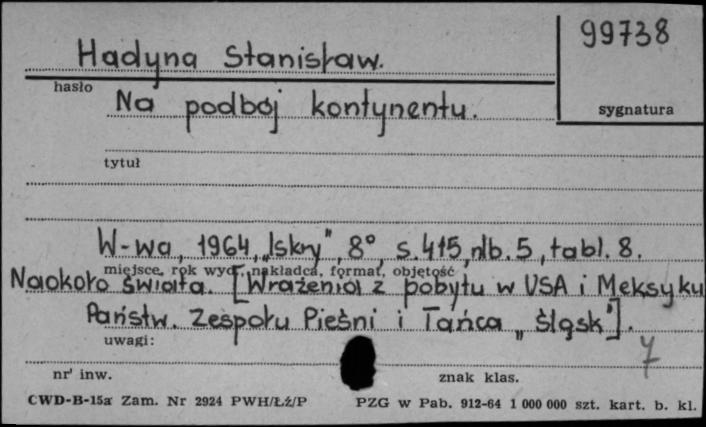 99738
Hadyna Stanisław.
hasło
sygnatura
Na podbój kontynentu.
tytuł
W-wa, 1964, „Iskry", 8°, s. 415, nlb. 5, tabl. 8.
miejsce, rok wyd., nakładca, format, objętość
Naokoło świata. [Wrażenia z pobytu w USA i Meksyku
Państw. Zespołu Pieśni i Tańca „Śląsk"].
uwagi:
7
nr inw.
znak klas.
CWD-B-15a Zam. Nr 2924 PWH/Łź/P
PZG w Pab. 912-64 1 000 000 szt. kart. b. kl.